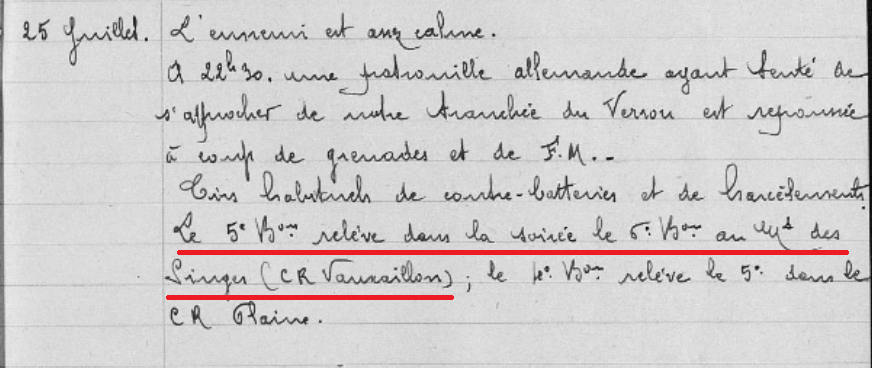 25 Juillet. L'ennemi est assez calme.
A 22h30. une patrouille allemande ayant tenté de
s'approcher de notre tranchée du Verrou est repoussée
à coup de grenades et de F.M. -
Tirs habituels de contre-batteries et de harcèlements.
Le 5e Bon relève dans la soirée le 6e Bon au Mt des
Singes (CR Vauxaillon) ; le 4e Bon relève le 5e dans le
CR Plaine.